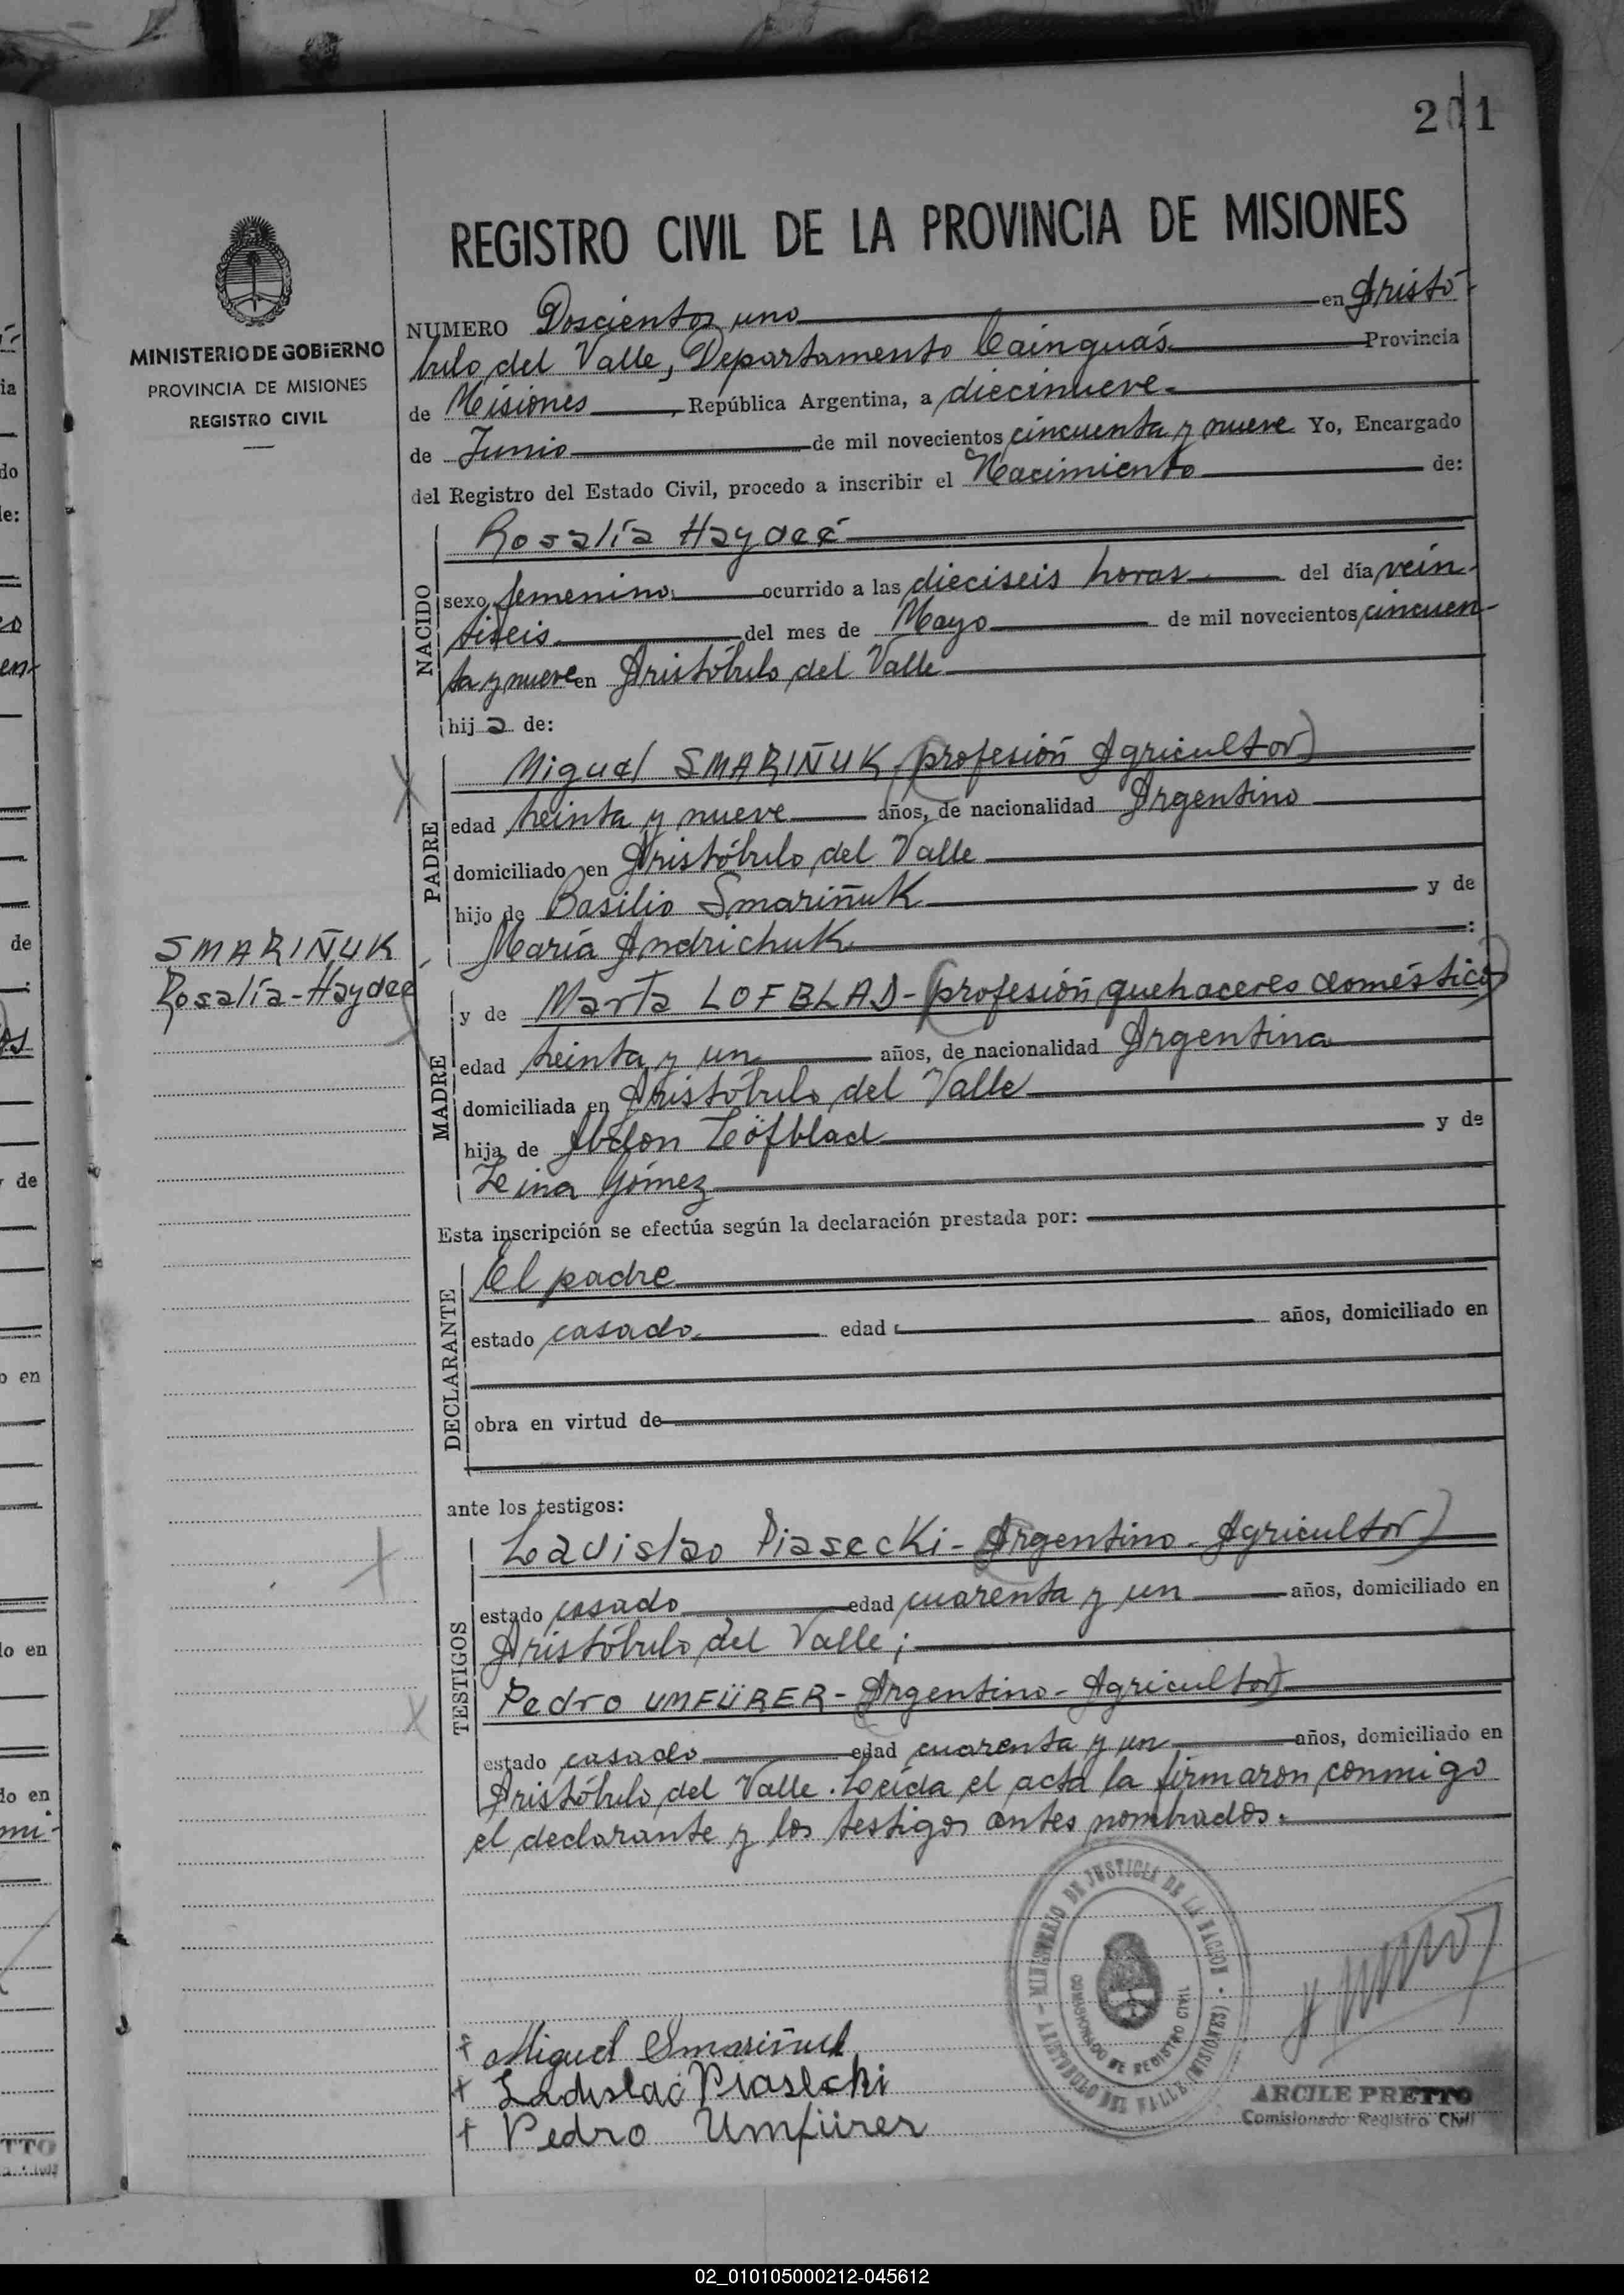 201
MINISTERIO DE GOBIERNO
PROVINCIA DE MISIONES
REGISTRO CIVIL
REGISTRO CIVIL DE LA PROVINCIA DE MISIONES
NUMERO Doscientos uno en Aristó-
bulo del Valle, Departamento Cainguás. Provincia
de Misiones, República Argentina, a diecinueve.
de Junio de mil novecientos cincuenta y nueve Yo, Encargado
del Registro del Estado Civil, procedo a inscribir el Nacimiento de:
NACIDO
Rosalía Haydeé
sexo femenino. ocurrido a las dieciseis horas. del día vein-
tiseis del mes de Mayo de mil novecientos cincuen-
ta y nueve en Aristóbulo del Valle
hija de:
PADRE
Miguel SMARIÑUK, (profesión Agricultor)
edad treinta y nueve años, de nacionalidad Argentino
domiciliado en Aristóbulo del Valle
hijo de Basilio Smariñuk y de
María Andrichuk. :
SMARIÑUK
Rosalía-Haydeé
MADRE
y de Marta LOFBLAD- (profesión quehaceres doméstico)
edad treinta y un años, de nacionalidad Argentina
domiciliada en Aristóbulo del Valle
hija de Abdon Löfblad y de
Leina Gómez
Esta inscripción se efectúa según la declaración prestada por:
DECLARANTE
El padre
estado casado. edad años, domiciliado en
obra en virtud de
ante los testigos:
TESTIGOS
Ladislao Piasecki- (Argentino- Agricultor)
estado casado edad cuarenta y un años, domiciliado en
Aristóbulo del Valle;
Pedro UMFÜRER- (Argentino- Agricultor)
estado casado edad cuarenta y un años, domiciliado en
Aristóbulo del Valle. Leída el acta la firmaron conmigo
el declarante y los testigos antes nombrados.
MINISTERIO DE JUSTICIA DE LA NACION
ARISTOBULO DEL VALLE (MISIONES)
COMISIONADO DE REGISTRO CIVIL
Miguel Smariñuk
Ladislao Piasecki
Pedro Umfürer
ARCILE PRETTO
Comisionado Registro Civil
02_010105000212-045612